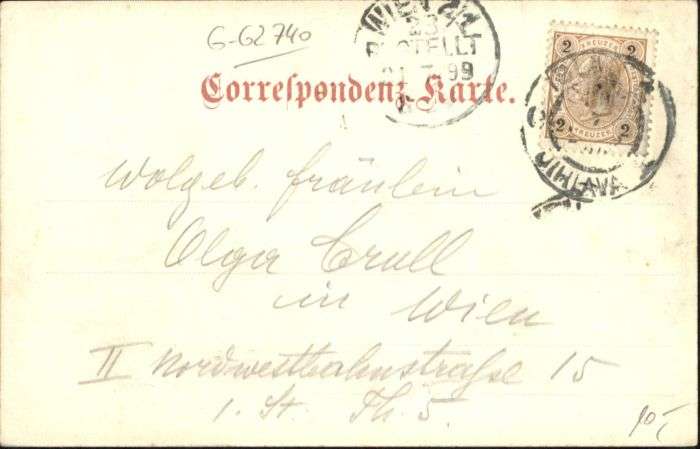 G-62740
WIEN 2/1
23
BESTELLT
21.7.99
2 KREUZER 2
2 KREUZER 2
JIHLAVA
Correspondenz-Karte.
Wolgeb. Fräulein
Olga Crull
in Wien
II Nordwestbahnstraße 15
1. St. Th. 5.
10,-